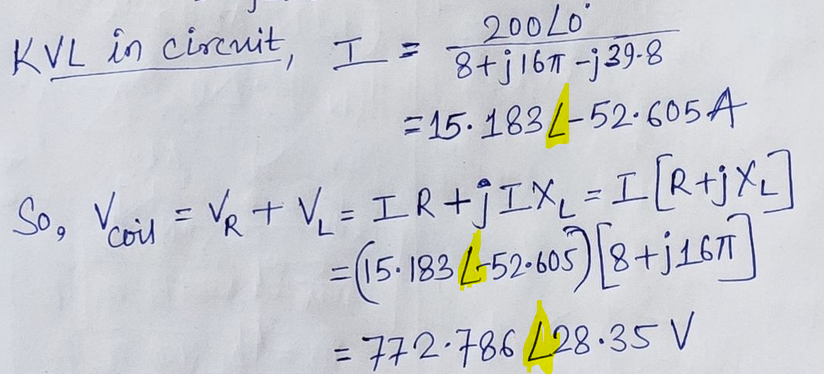 KVL in circuit, I = 200∠0° / 8+j16π-j39.8
= 15.183∠-52.605 A
So, V_coil = V_R + V_L = IR + jIX_L = I[R+jX_L]
= (15.183∠-52.605)[8+j16π]
= 772.786∠28.35 V